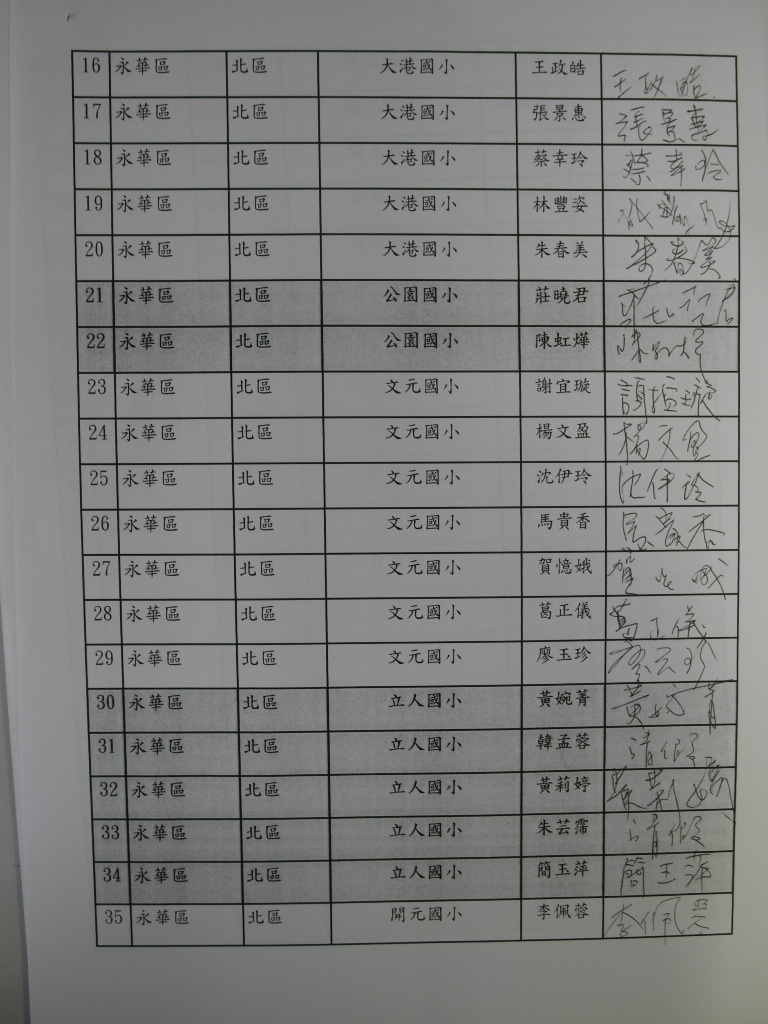 16 永華區 北區 大港國小 王政皓 王政皓
17 永華區 北區 大港國小 張景惠 張景惠
18 永華區 北區 大港國小 蔡幸玲 蔡幸玲
19 永華區 北區 大港國小 林豐姿
20 永華區 北區 大港國小 朱春美 朱春美
21 永華區 北區 公園國小 莊曉君
22 永華區 北區 公園國小 陳虹燁
23 永華區 北區 文元國小 謝宜璇
24 永華區 北區 文元國小 楊文盈 楊文盈
25 永華區 北區 文元國小 沈伊玲 沈伊玲
26 永華區 北區 文元國小 馬貴香 馬貴香
27 永華區 北區 文元國小 賀憶娥
28 永華區 北區 文元國小 葛正儀 葛正儀
29 永華區 北區 文元國小 廖玉珍 廖玉珍
30 永華區 北區 立人國小 黃婉菁 黃婉菁
31 永華區 北區 立人國小 韓孟蓉 請假
32 永華區 北區 立人國小 黃莉婷 黃莉婷
33 永華區 北區 立人國小 朱芸霈 請假
34 永華區 北區 立人國小 簡玉萍 簡玉萍
35 永華區 北區 開元國小 李佩蓉 李佩蓉